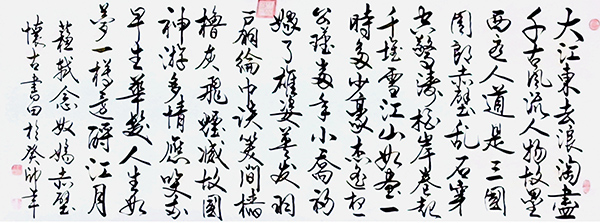 大江東去浪淘盡
千古風流人物故壘
西邊人道是三國
周郎赤壁乱石穿
空驚濤拍岸卷起
千堆雪江山如畫一
時多少豪杰遥想
公瑾當年小喬初
嫁了雄姿英发羽
扇綸巾談笑间檣
櫓灰飛煙滅故國
神游多情應笑我
早生華髮人生如
夢一樽還酹江月
蘇軾念奴嬌赤壁
懷古書田於癸卯年